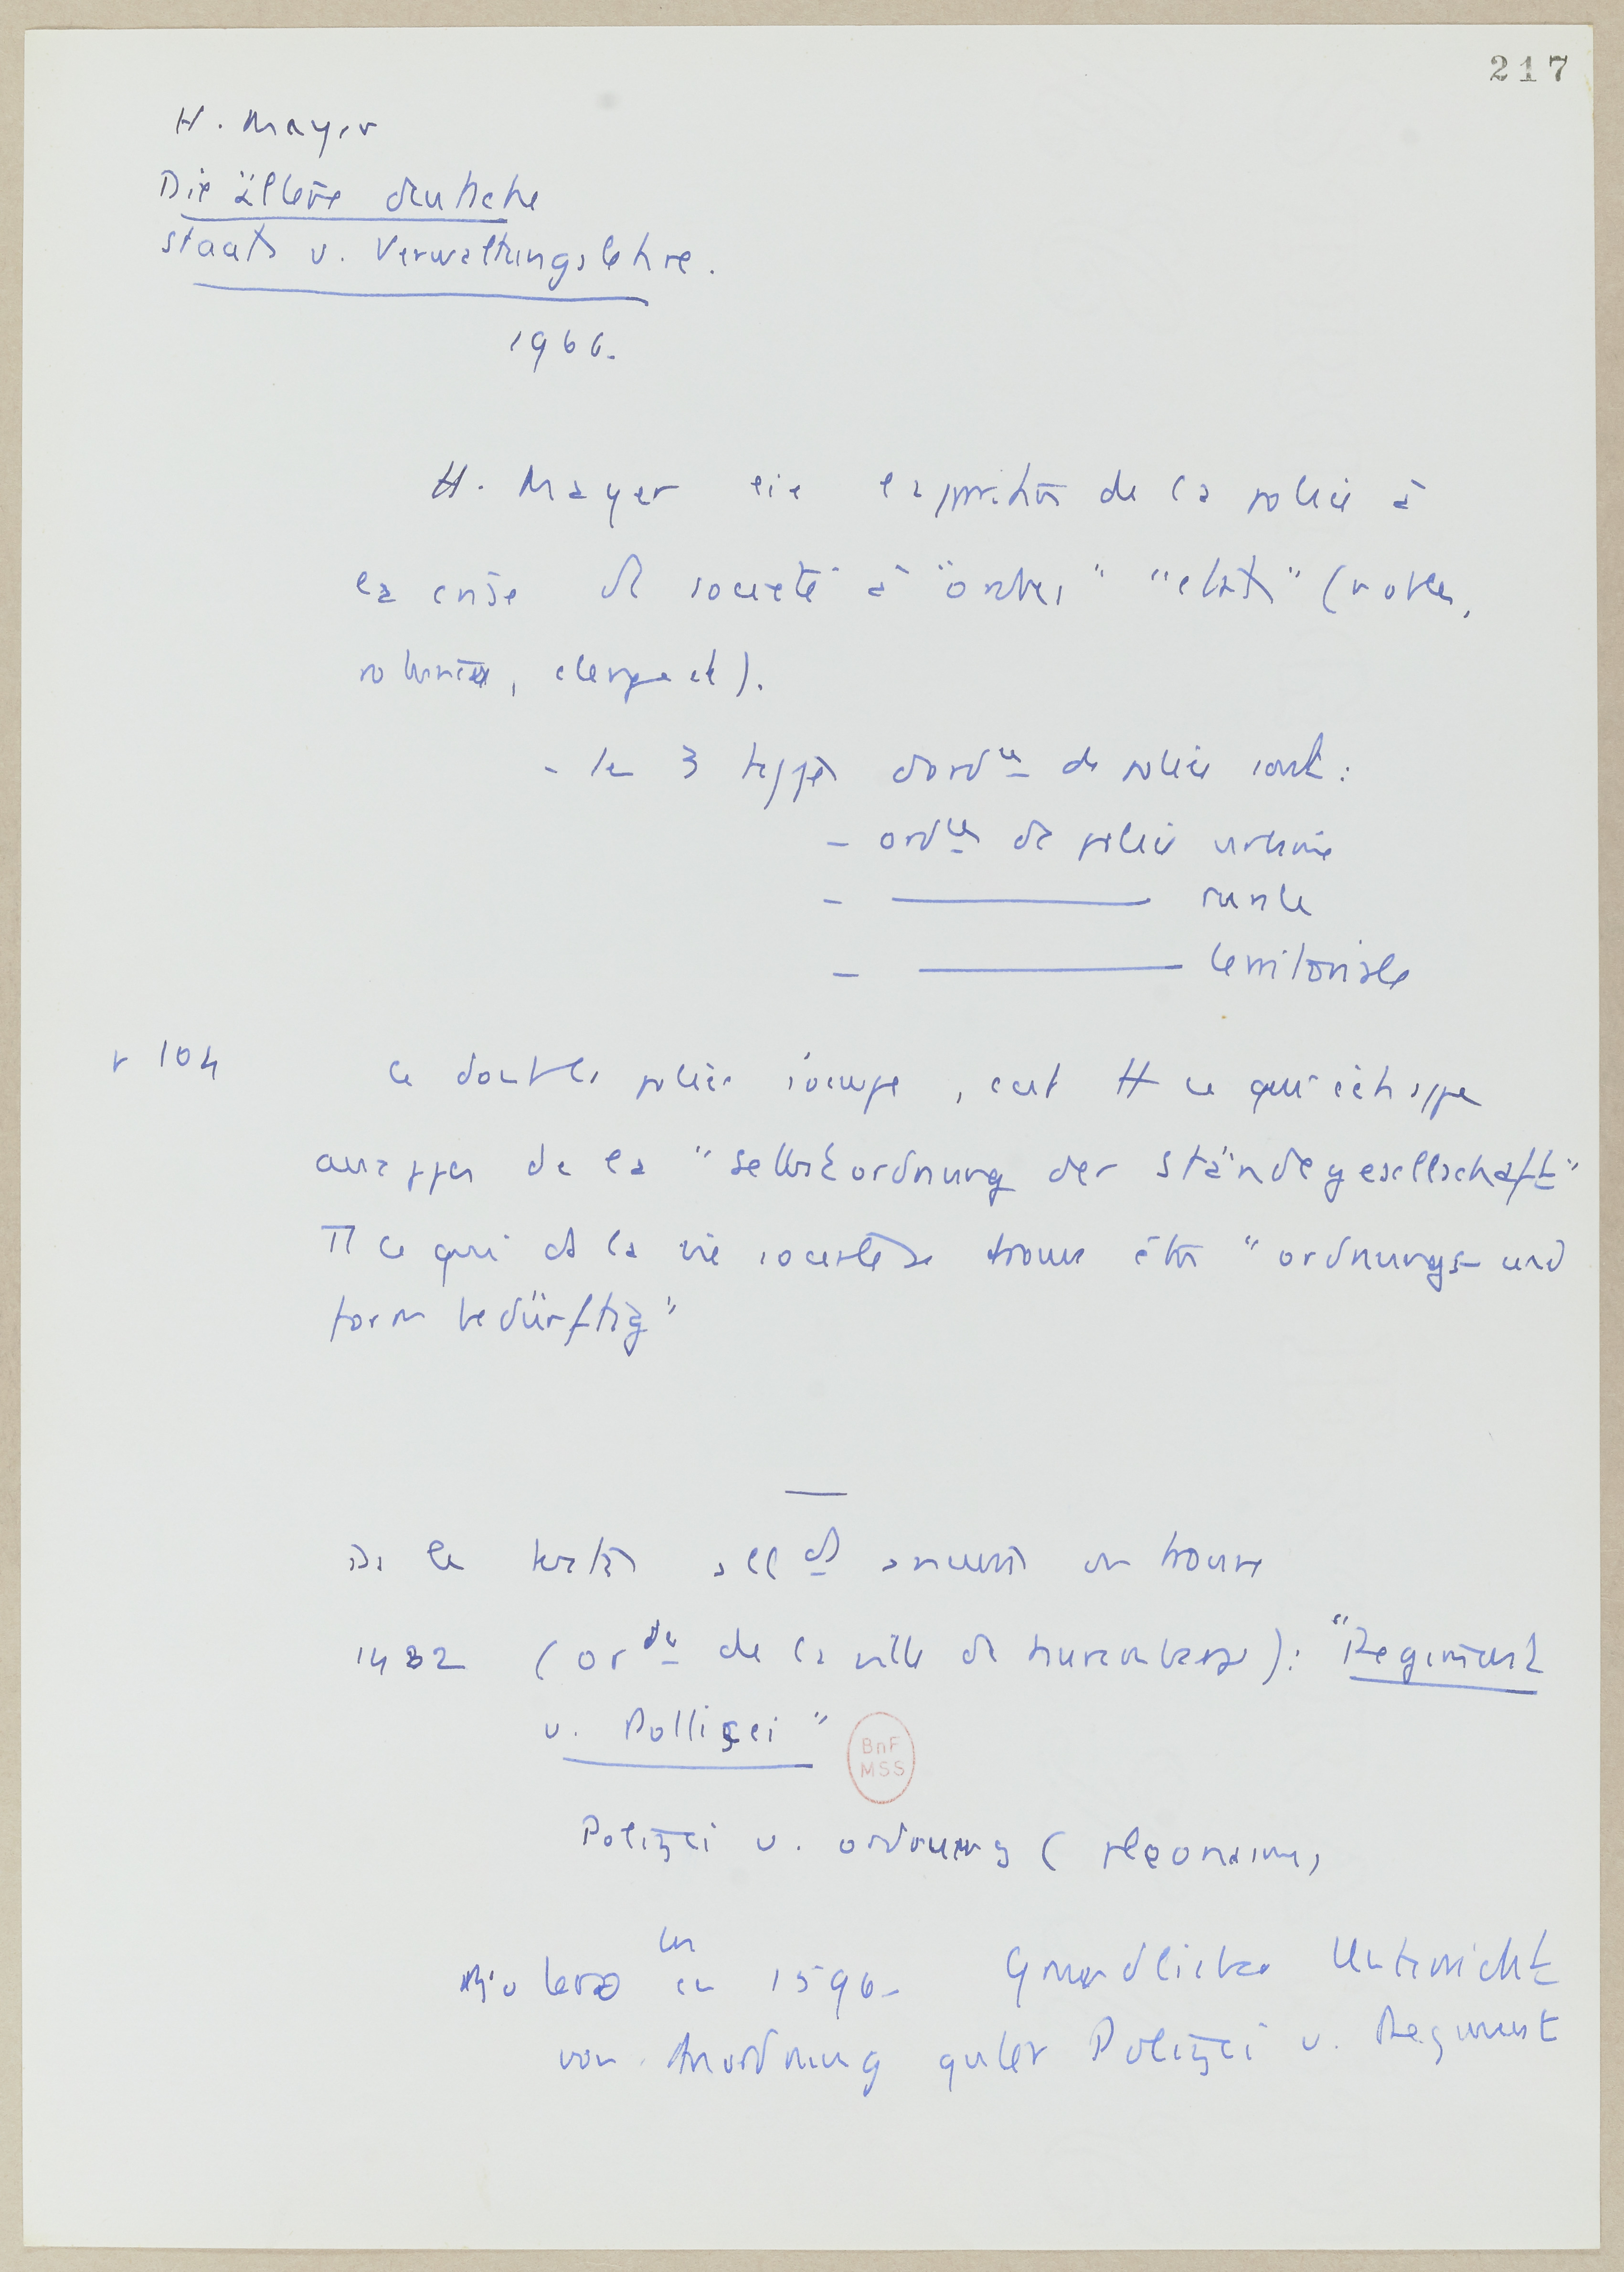 217
H. Mayer
Die ältere deutsche
Staats u. Verwaltungslehre.
1966.
H. Mayer lie l'apparition de la police à
la crise de société à "ordres" "états" (nobles,
, clergé etc).
- les 3 types d'ordces de police sont :
- ordces de police urbaine
- ——— rurale
- ——— territoriale
p 104
Ce dont la police s'occupe, c'est tt ce qui échappe
de la "Selbstordnung der Ständegesellschaft"
Tt ce qui ds la vie sociale se trouve être "ordnungs- und
form bedürftig"
Ds les textes allds anciens on trouve
1482 (ordce de la ville de Nuremberg) : "Regiment
u. Pollizei"
BnF
MSS
Polizei u. Ordnung ( pléonasme)
en 1596. Grundlicher Unterricht
von Anordnung guter Polizei u. Regiment